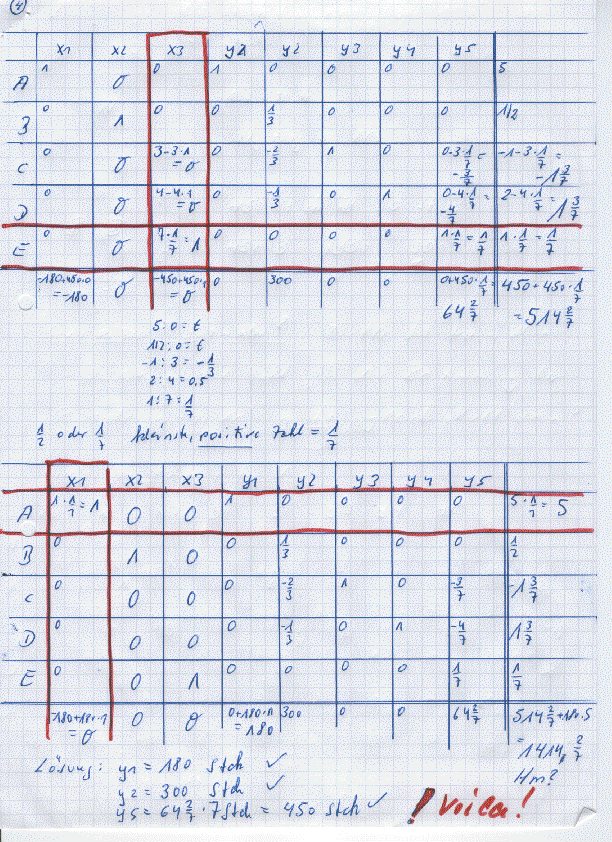 4
x1 x2 x3 y2 y2 y3 y4 y5
A 1 0 0 1 0 0 0 0 5
B 0 1 0 0 1/3 0 0 0 1/2
C 0 0 3-3·1 = 0 0 -2/3 1 0 0-3·1/7 = -3/7 -1-3·1/7 = -1 3/7
D 0 0 4-4·1 = 0 0 -1/3 0 1 0-4·1/7 = -4/7 2-4·1/7 = 1 3/7
E 0 0 7·1/7 = 1 0 0 0 0 1·1/7 = 1/7 1·1/7 = 1/7
-180+450·0 = -180 0 -450+450·1 = 0 0 300 0 0 0+450·1/7 = 64 2/7 450+450·1/7 = 514 2/7
5:0 = E
1/2:0 = E
-1:3 = -1/3
2:4 = 0,5
1:7 = 1/7
1/2 oder 1/7 kleinste, positive Zahl = 1/7
x1 x2 x3 y1 y2 y3 y4 y5
A 1·1/1 = 1 0 0 1 0 0 0 0 5·1/1 = 5
B 0 1 0 0 1/3 0 0 0 1/2
C 0 0 0 0 -2/3 1 0 -3/7 -1 3/7
D 0 0 0 0 -1/3 0 1 -4/7 1 3/7
E 0 0 1 0 0 0 0 1/7 1/7
-180+180·1 = 0 0 0 0+180·1 = 180 300 0 0 64 2/7 514 2/7+180·5 = 1414, 2/7
Hm?
Lösung: y1 = 180 Stck ✓
y2 = 300 Stck ✓
y5 = 64 2/7 · 7 Stck = 450 Stck ✓
! Voila!